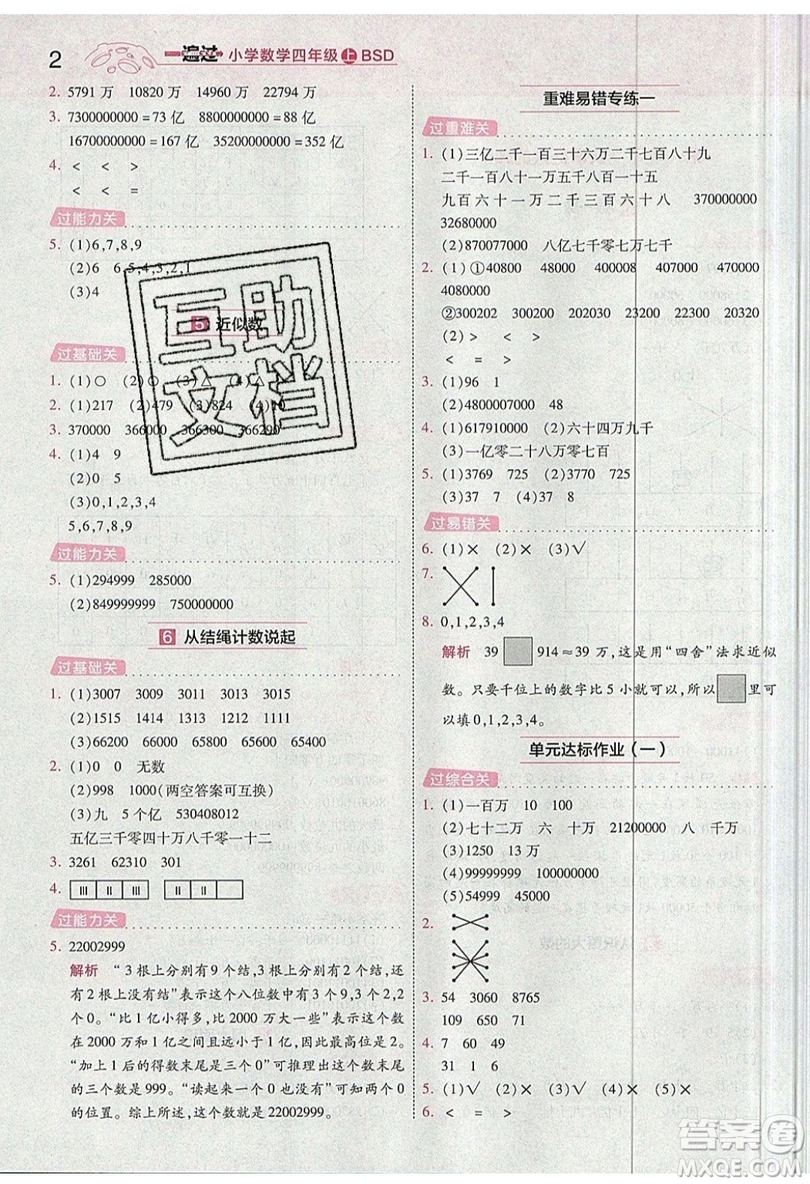 2
一遍过 小学数学四年级 上 BSD
2. 5791 万 10820 万 14960 万 22794 万
3. 7300000000=73 亿 8800000000=88 亿
16700000000=167 亿 35200000000=352 亿
4. < < >
< < =
过能力关
5. (1)6,7,8,9
(2)6 6,5,4,3,2,1
(3)4
5 近似数
过基础关
1. (1)○ (2)○ (3)△ (4)△
2. (1)217 (2)479 (3)824 (4)10
3. 370000 366000 366300 366290
4. (1)4 9
(2)0 5
(3)0,1,2,3,4
5,6,7,8,9
过能力关
5. (1)294999 285000
(2)849999999 750000000
6 从结绳计数说起
过基础关
1. (1)3007 3009 3011 3013
(2)1515 1414 1313 1212 1111
(3)66200 66000 65800 65600 65400
2. (1)0 0 无数
(2)998 1000(两空答案可互换)
(3)九 5个亿 530408012
五亿三千零四十万八千零一十二
3. 3261 62310 301
4. III II II II II
过能力关
5. 22002999
解析 “3 根上分别有 9 个结,3 根上分别有 0 个结,还
有 2 根上没有结”表示这个八位数中有 3 个 9,3 个 0,2
个 2。“比 1 亿小得多,比 2000 万大一些”表示这个数
在 2000 万和 1 亿之间且远小于 1 亿,故最高位是 2。
“加上 1 后的得数末尾是三个 0”可推理出这个数末尾
的三个数是 999。“读起来一个 0 也不读”可知两个 0
的位置。综上所述,这个数就是 22002999。
重难易错专练一
过重难关
1. (1)三亿二千一百三十六万二千七百八十九
二千一百八十万五千八百一十五
九百六十一万二千三百六十六 370000000
32680000
(2)870077000 八亿七千零七万七千
2. (1)①40800 40080 40008 48000
②300202 300200 202030 23200 20320
(2)> < >
< = >
3. (1)96 1
(2)4800007000 48
4. (1)617910000 (2)六十四万九千
(3)一亿零二十八万零七百
5. (1)3769 725 (2)70630 725
(3)37 7 (4)8 8
过易错关
6. (1)× (2)× (3)√
7.
8. 0,1,2,3,4
解析 39 914≈39 万,这是用“四舍”法求近似
数。只要千位上的数字比 5 小就可以,所以 里可
以填 0,1,2,3,4。
单元达标作业(一)
过综合关
1. (1)一百万 10 100
(2)七十二万 六 十万 21200000 八 千万
(3)1250 13 万
(4)99999999 100000000
(5)54999 45000
2.
3. 54 3060 8765
109 650 71
4. 7 60 49
31 1 6
5. (1)√ (2)× (3)× (4)√ (5)√
6. < = >
互助
文档
答案圈
MXQE.COM